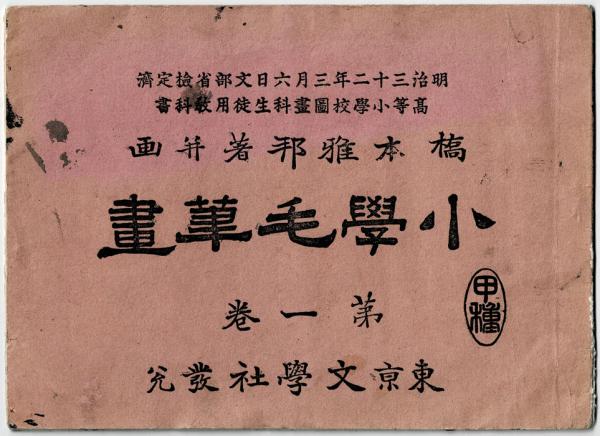 明治三十二年三月六日文部省檢定濟
高等小學校圖畫科生徒用敎科書
橋本雅邦著并画
小學毛筆畫
甲種
第一卷
東京文學社發兌